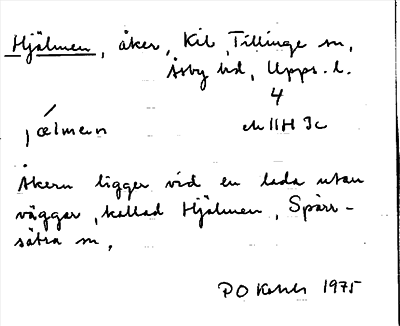 Hjälmen, åker, Kil, Tillinge sn,
Åsby hd, Upps. l.
4
jælmenn
11H Ic
Åkern ligger vid en lada utan
väggar, kallad Hjälmen, Sparr-
sätra sn,
PO 1975